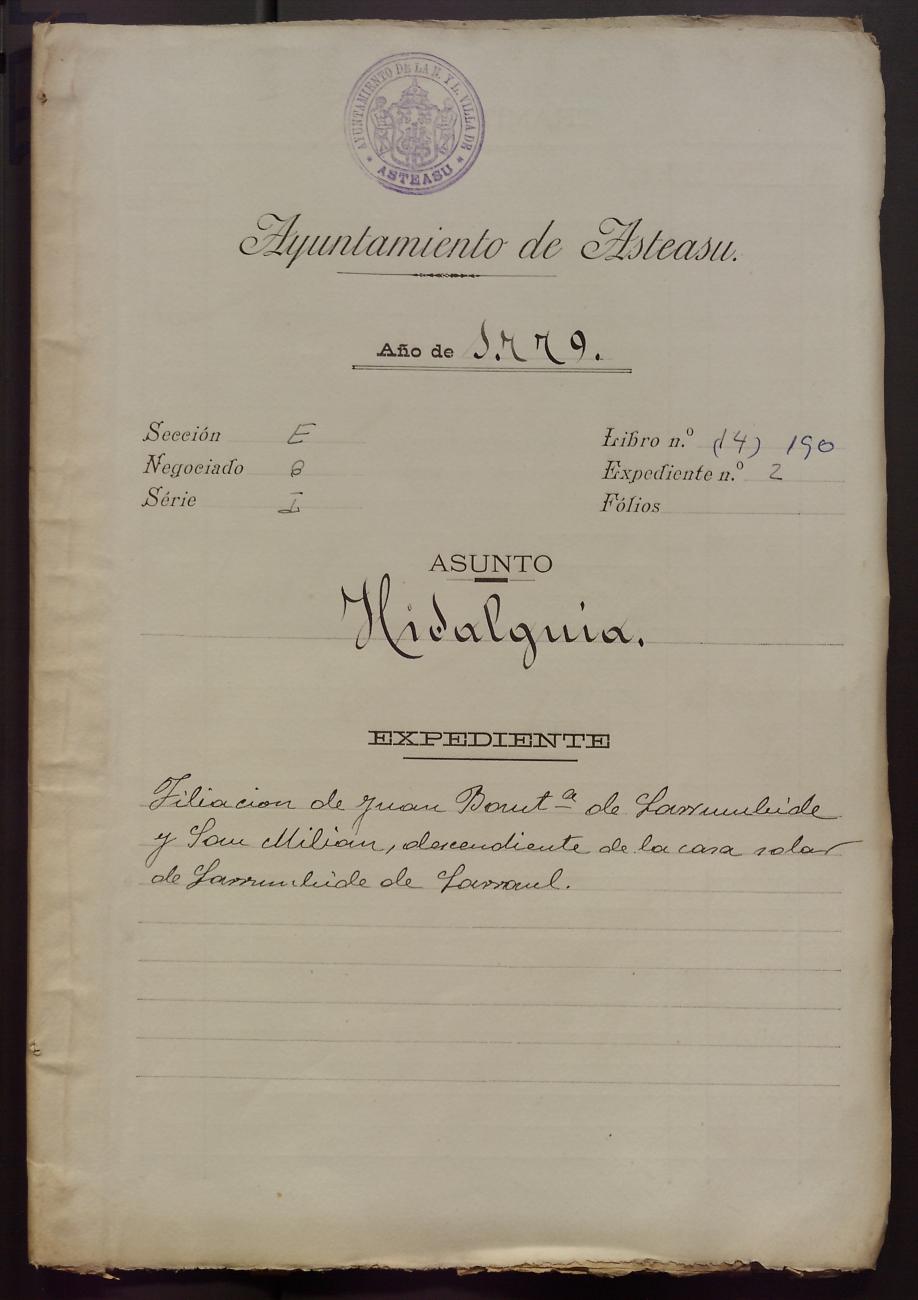 AYUNTAMIENTO DE LA N. Y L. VILLA DE
* ASTEASU *
Ayuntamiento de Asteasu.
Año de 1.779.
Sección E
Libro n.º (14) 190
Negociado 6
Expediente n.º 2
Série I
Fólios
ASUNTO
Hidalguia.
EXPEDIENTE
Filiacion de Juan Baut.ª de Larrumbide
y San Milian, descendiente de la casa solar
de Larrumbide de Larraul.